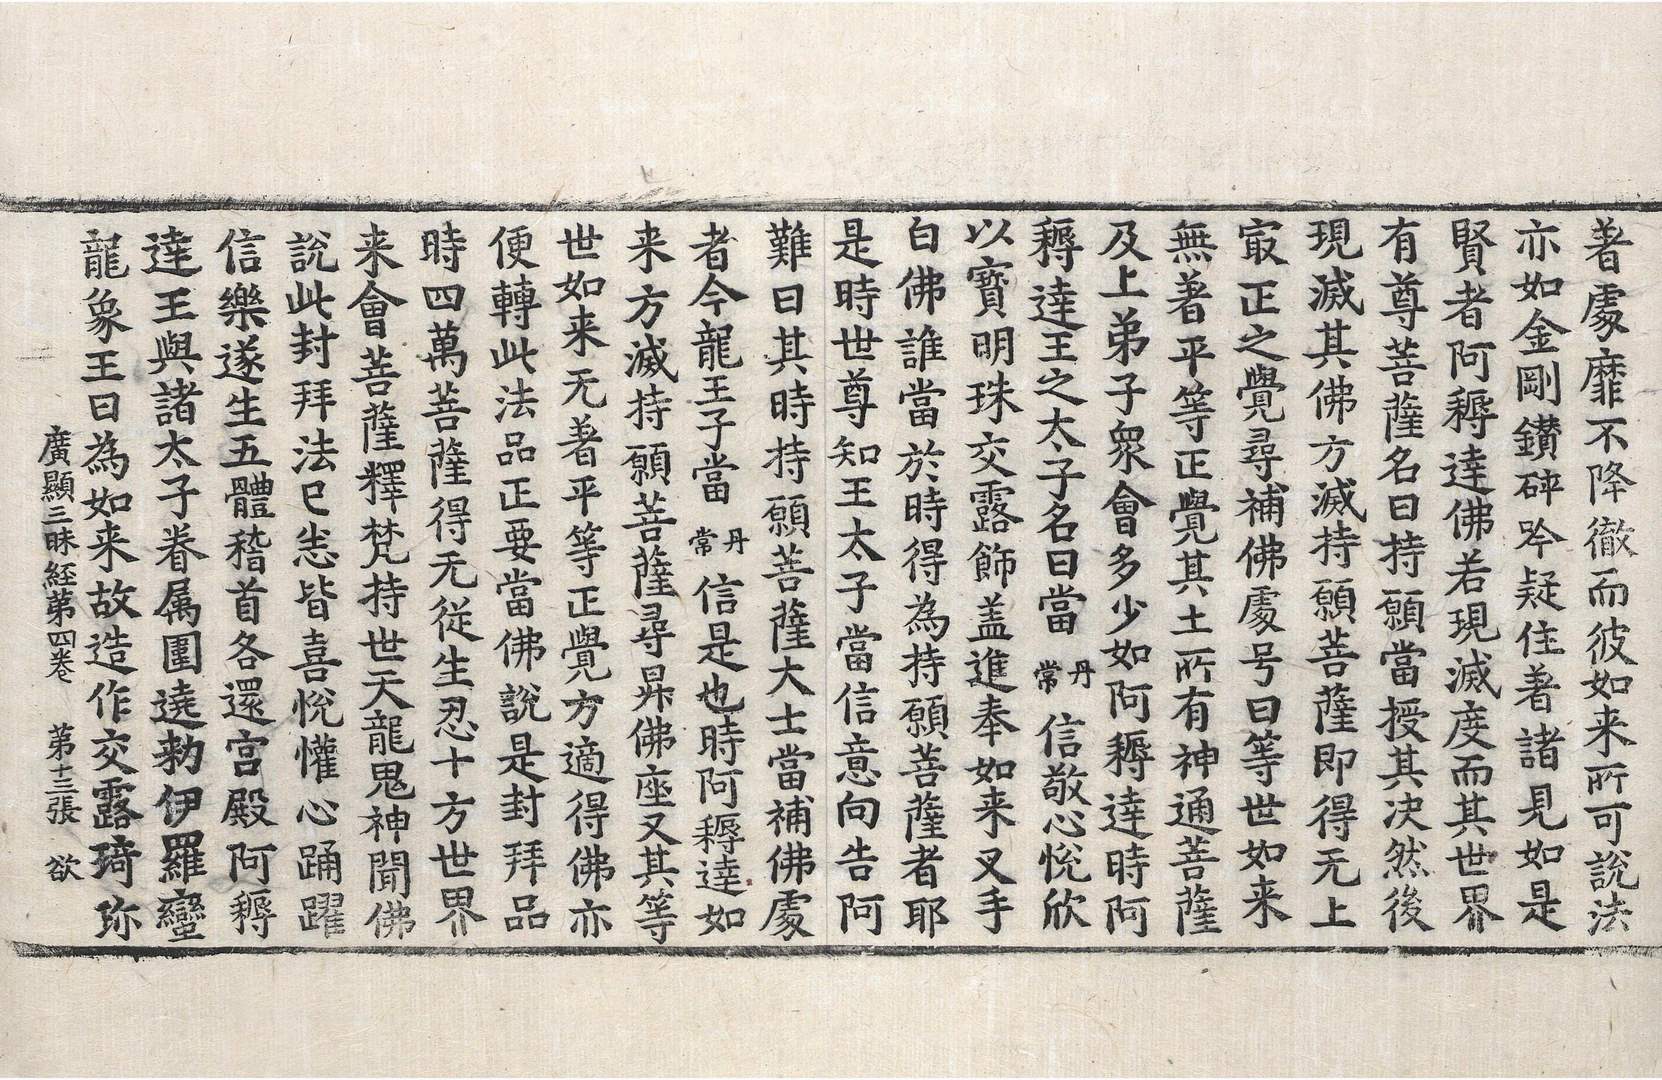 著處靡不降徹而彼如来所可說法
亦如金剛鑚碎吟疑住著諸見如是
賢者阿耨達佛若現滅度而其世界
有尊菩薩名曰持願當授其决然後
現滅其佛方滅持願菩薩即得无上
㝡正之覺尋補佛處号曰等世如来
無著平等正覺其土所有神通菩薩
及上弟子衆會多少如阿耨達時阿
耨達王之太子名曰當丹常信敬心悅欣
以寶明珠交露飾盖進奉如来叉手
白佛誰當於時得為持願菩薩者耶
是時世尊知王太子當信意向告阿
難曰其時持願菩薩大士當補佛處
者今龍王子當丹常信是也時阿耨達如
来方滅持願菩薩尋昇佛座又其等
世如来无著平等正覺方適得佛亦
便轉此法品正要當佛說是封拜品
時四萬菩薩得无從生忍十方世界
来會菩薩釋梵持世天龍鬼神聞佛
說此封拜法已悉皆喜悅懽心踊躍
信樂遂生五體稽首各還宮殿阿耨
達王與諸太子眷属圍遶勑伊羅蠻
龍象王曰為如来故造作交露琦珎
廣顯三昧経第四卷 第十三張 欲